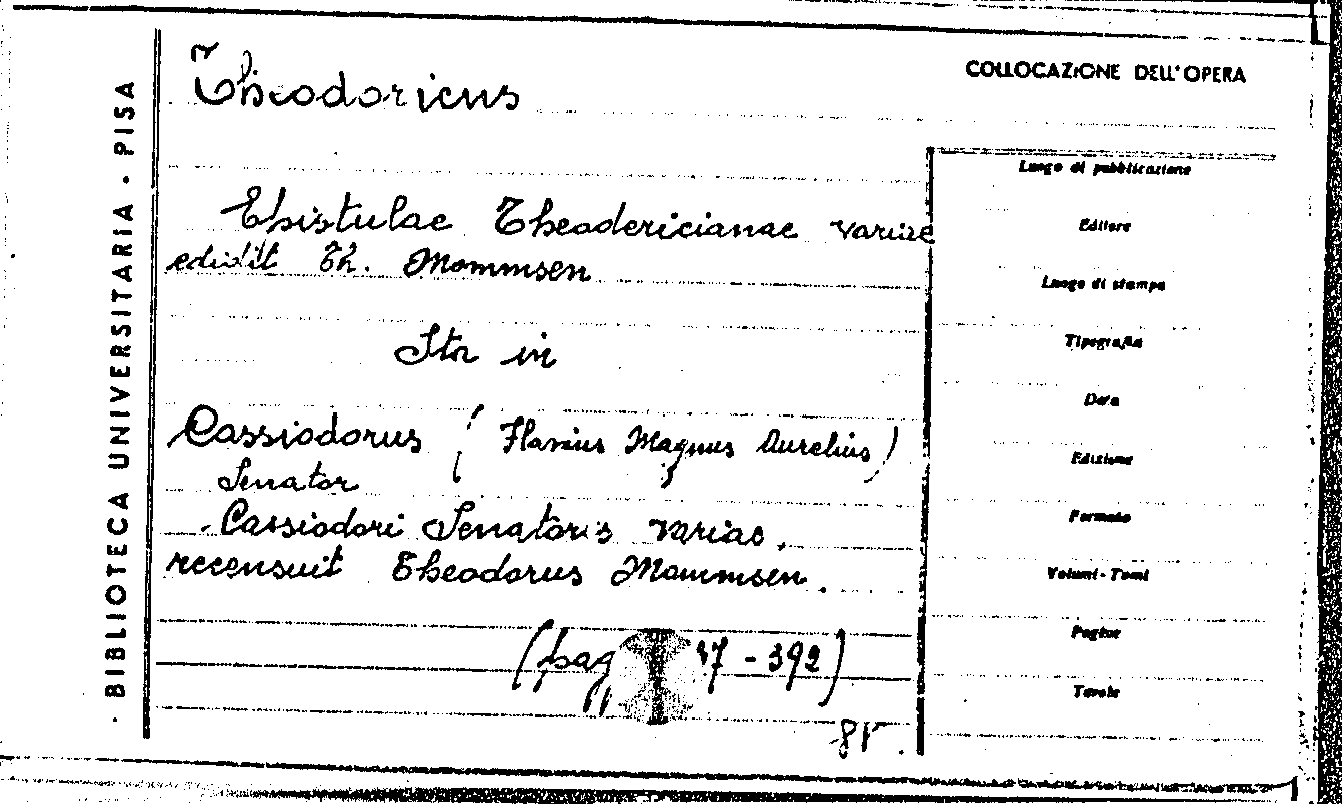 BIBLIOTECA UNIVERSITARIA - PISA
Theodoricus
Epistulae Theodericianae variae
edidit Th. Mommsen
Sta in
Cassiodorus (Flavius Magnus Aurelius)
Senator
Cassiodori Senatoris variae.
recensuit Theodorus Mommsen.
(pagg 37-392)
COLLOCAZIONE DELL'OPERA
Luogo di pubblicazione
Editore
Luogo di stampa
Tipografia
Data
Edizione
Formato
Volumi-Tomi
Pagine
Tavole